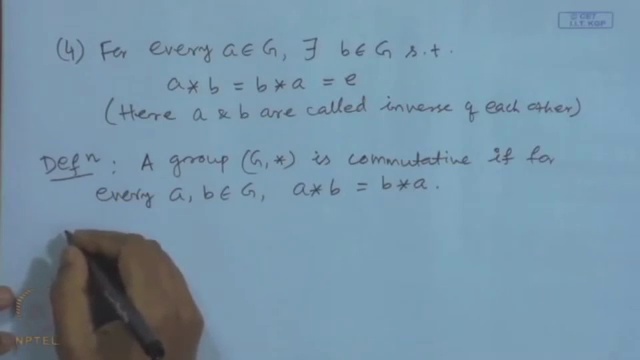 © CET
I.I.T. KGP
(4) For every a ∈ G, ∃ b ∈ G s.t.
a * b = b * a = e
(Here a & b are called inverse of each other)
Defⁿ : A group (G, *) is commutative if for
every a, b ∈ G, a * b = b * a.
NPTEL